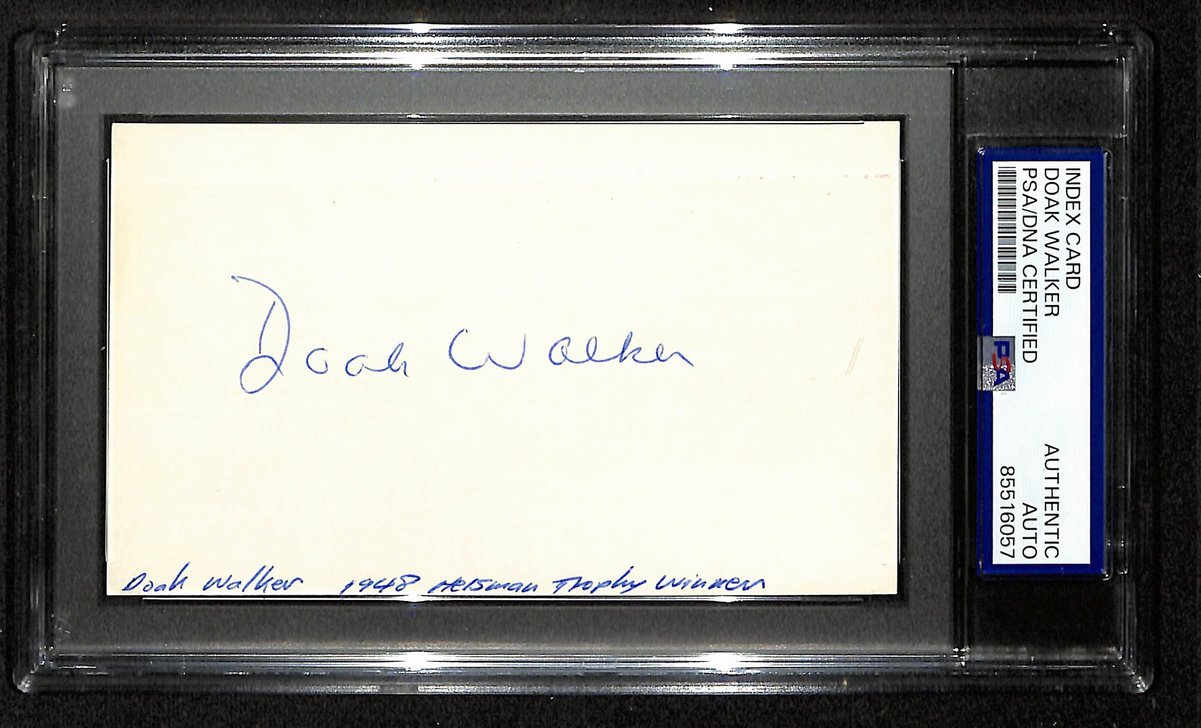 Doak Walker
Doak Walker 1948 Heisman Trophy Winner
INDEX CARD
DOAK WALKER
PSA/DNA CERTIFIED
AUTHENTIC
AUTO
85516057
PSA